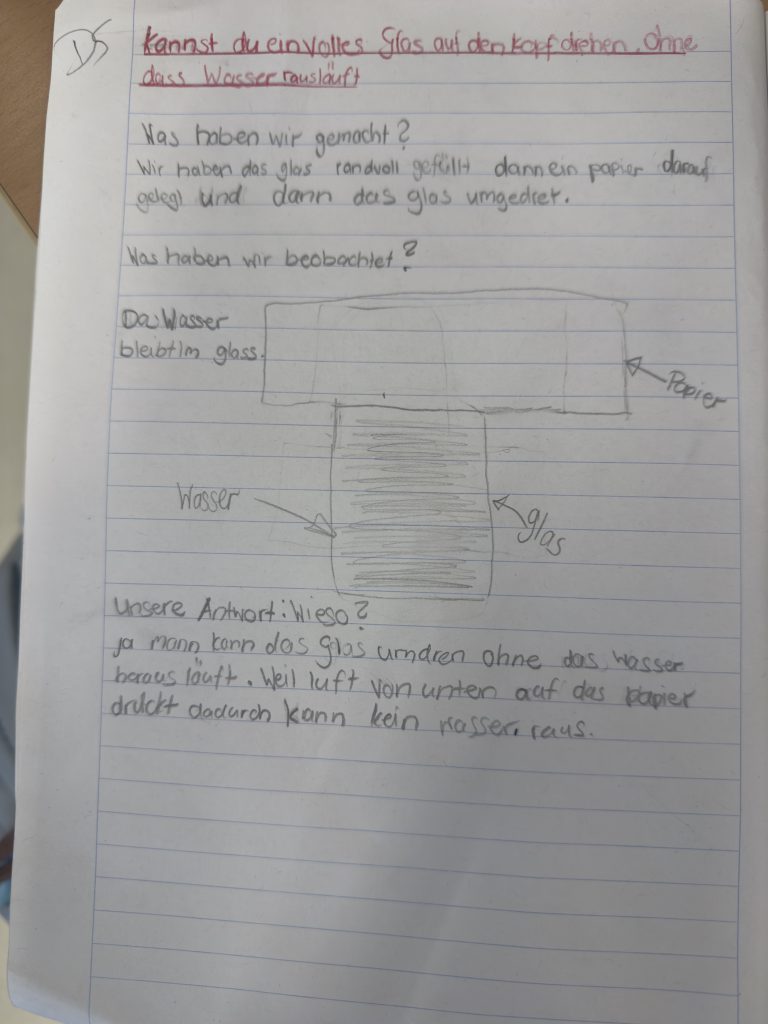 DS
Kannst du ein volles Glas auf den kopf drehen, Ohne
dass Wasser rausläuft
Was haben wir gemacht?
Wir haben das glas randvoll gefüllt dann ein papier darauf
gelegt und dann das glas umgedret.
Was haben wir beobachtet?
Das Wasser
bleibt im glass.
Papier
Wasser
glas
Unsere Antwort: Wieso?
ja mann kann das glas umdren ohne das wasser
heraus läuft. Weil luft von unten auf das papier
drückt dadurch kann kein wasser raus.